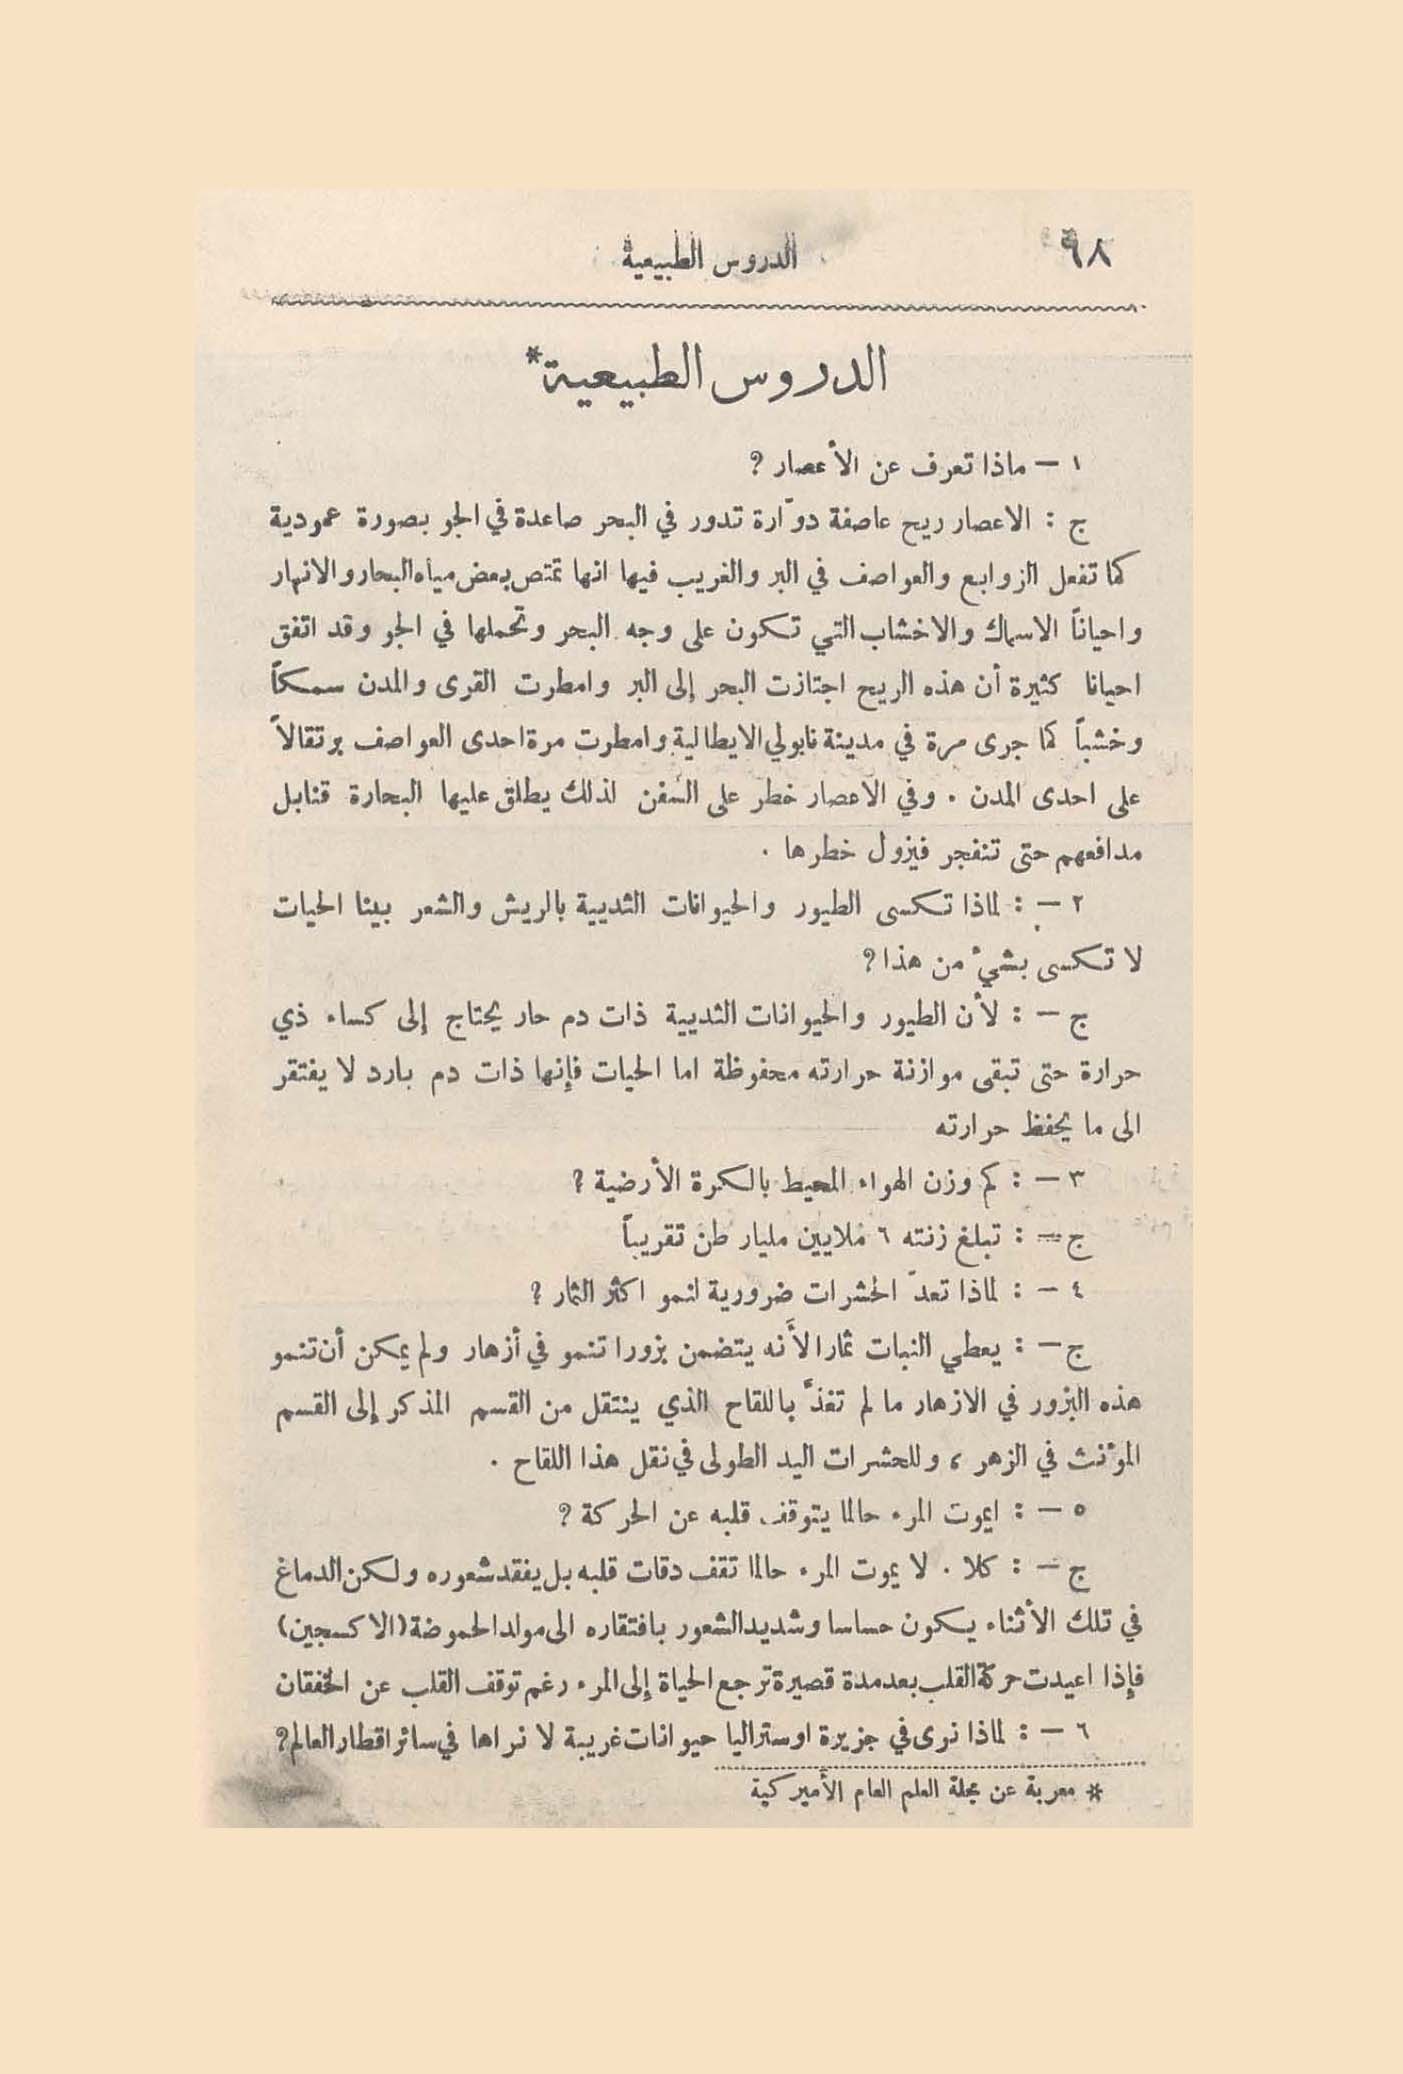 ٩٨
الدروس الطبيعية
الدروس الطبيعية*
١ – ماذا تعرف عن الأعصار ؟
ج : الاعصار ريح عاصفة دوّارة تدور في البحر صاعدة في الجو بصورة عمودية
كما تفعل الزوابع والعواصف في البر والغريب فيها انها تمتص بعض مياه البحار والانهار
واحياناً الاسماك والاخشاب التي تكون على وجه البحر وتحملها في الجو وقد اتفق
احيانا كثيرة أن هذه الريح اجتازت البحر إلى البر وامطرت القرى والمدن سمكاً
وخشباً كما جرى مرة في مدينة نابولي الايطالية وامطرت مرة احدى العواصف برتقالاً
على احدى المدن . وفي الاعصار خطر على السفن لذلك يطلق عليها البحارة قنابل
مدافعهم حتى تنفجر فيزول خطرها .
٢ – : لماذا تكسى الطيور والحيوانات الثديية بالريش والشعر بينا الحيات
لا تكسى بشيء من هذا ؟
ج – : لأن الطيور والحيوانات الثديية ذات دم حار يحتاج إلى كساء ذي
حرارة حتى تبقى موازنة حرارته محفوظة اما الحيات فإنها ذات دم بارد لا يفتقر
الى ما يحفظ حرارته
٣ – : كم وزن الهواء المحيط بالكرة الأرضية ؟
ج – : تبلغ زنته ٦ ملايين مليار طن تقريباً
٤ – : لماذا تعدّ الحشرات ضرورية لنمو اكثر الثمار ؟
ج – : يعطي النبات ثمارا لأَنه يتضمن بزورا تنمو في أزهار ولم يمكن أن تنمو
هذه البزور في الازهار ما لم تغذَّ باللقاح الذي ينتقل من القسم المذكر إلى القسم
المؤنث في الزهر ، وللحشرات اليد الطولى في نقل هذا اللقاح .
٥ – : ايموت المرء حالما يتوقف قلبه عن الحركة ؟
ج – : كلا . لا يموت المرء حالما تقف دقات قلبه بل يفقد شعوره ولكن الدماغ
في تلك الأثناء يكون حساسا وشديد الشعور بافتقاره الى مولد الحموضة (الاكسجين)
فإذا اعيدت حركة القلب بعد مدة قصيرة ترجع الحياة إلى المرء رغم توقف القلب عن الخفقان
٦ – : لماذا نرى في جزيرة اوستراليا حيوانات غريبة لا نراها في سائر اقطار العالم ؟
* معربة عن مجلة العلم العام الأميركية